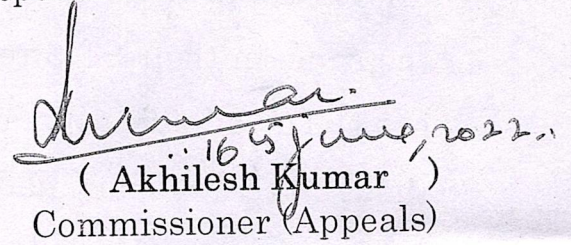 Kumar.
16th June, 2022.
( Akhilesh Kumar )
Commissioner (Appeals)